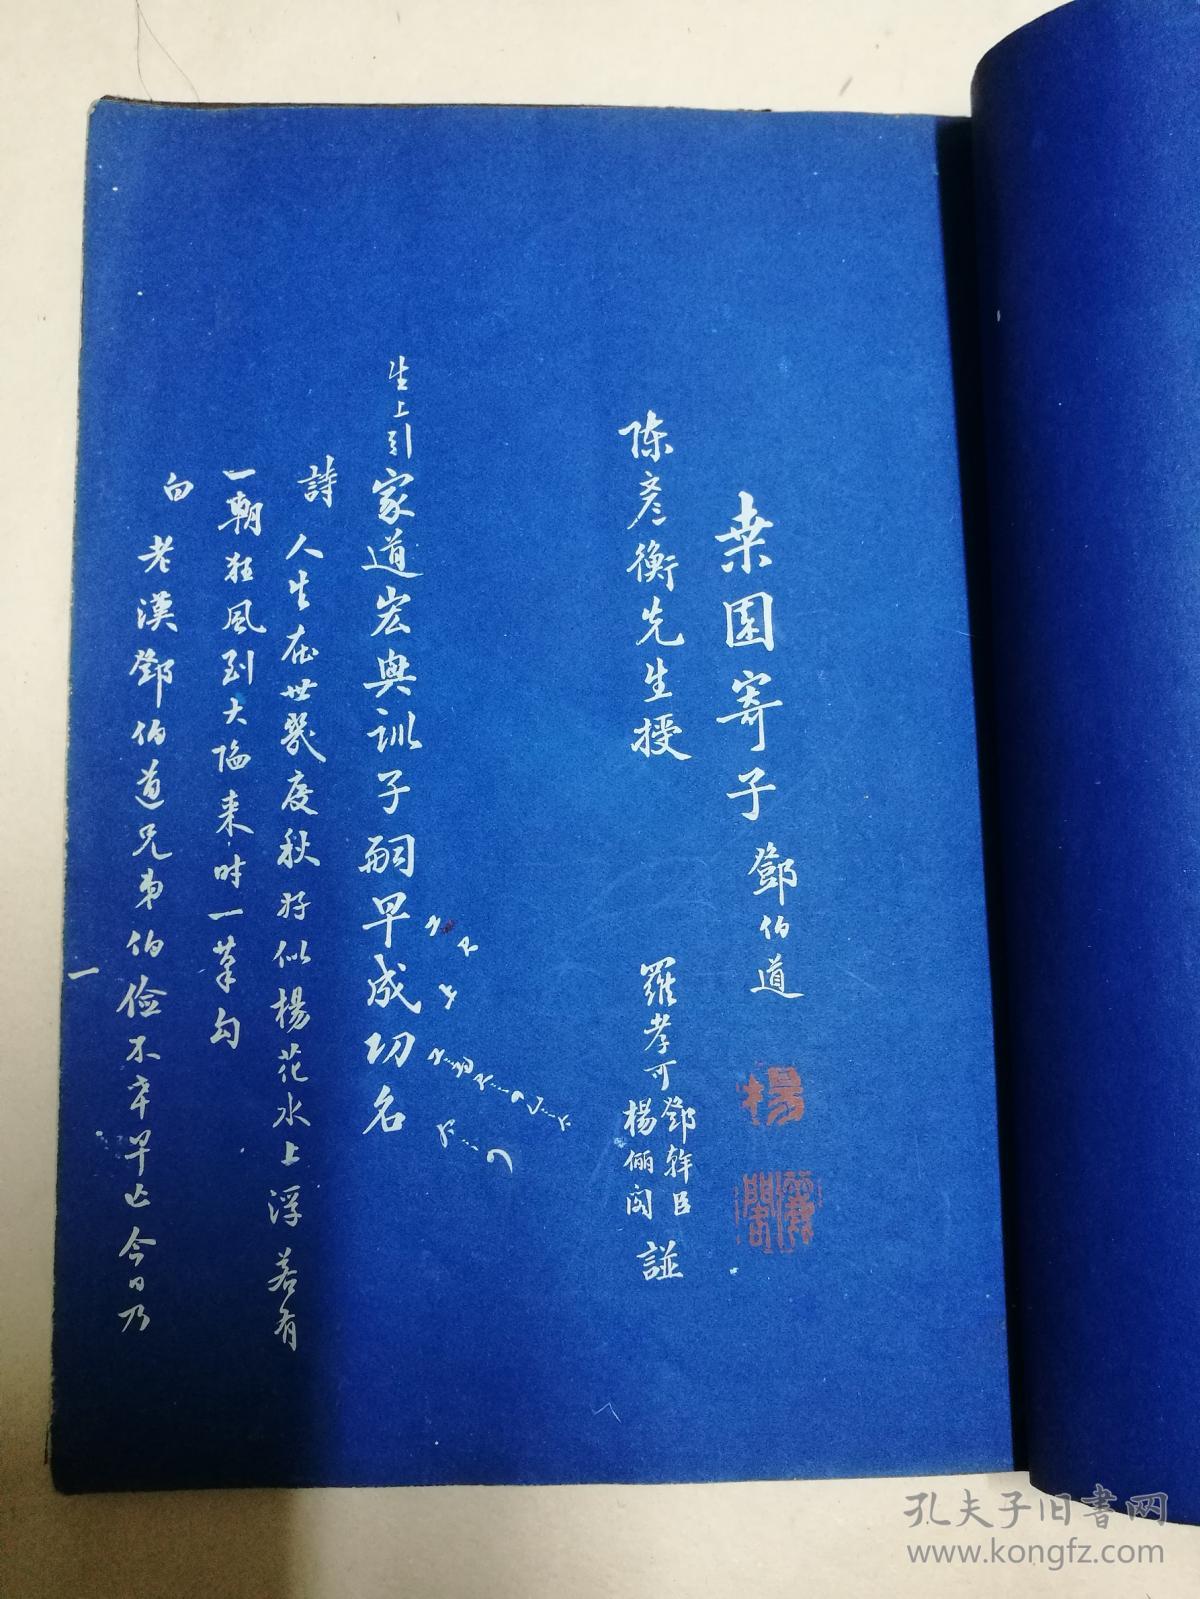 桒園寄子 鄧伯道
楊
儷閣
陈彦衡先生授 羅孝可 鄧幹臣 楊儷閣 諩
生上引 家道宏興訓子嗣早成功名
詩 人生在世幾度秋好似楊花水上浮若有
一朝狂風到大限来时一筆勾
白 老漢鄧伯道兄弟伯俭不幸早亡今日乃
一
孔夫子旧书网
www.kongfz.com